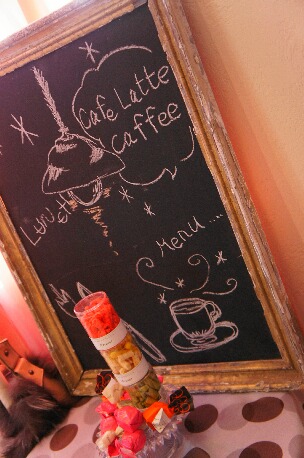 Cafe Latte
caffee
Lunch
Menu....